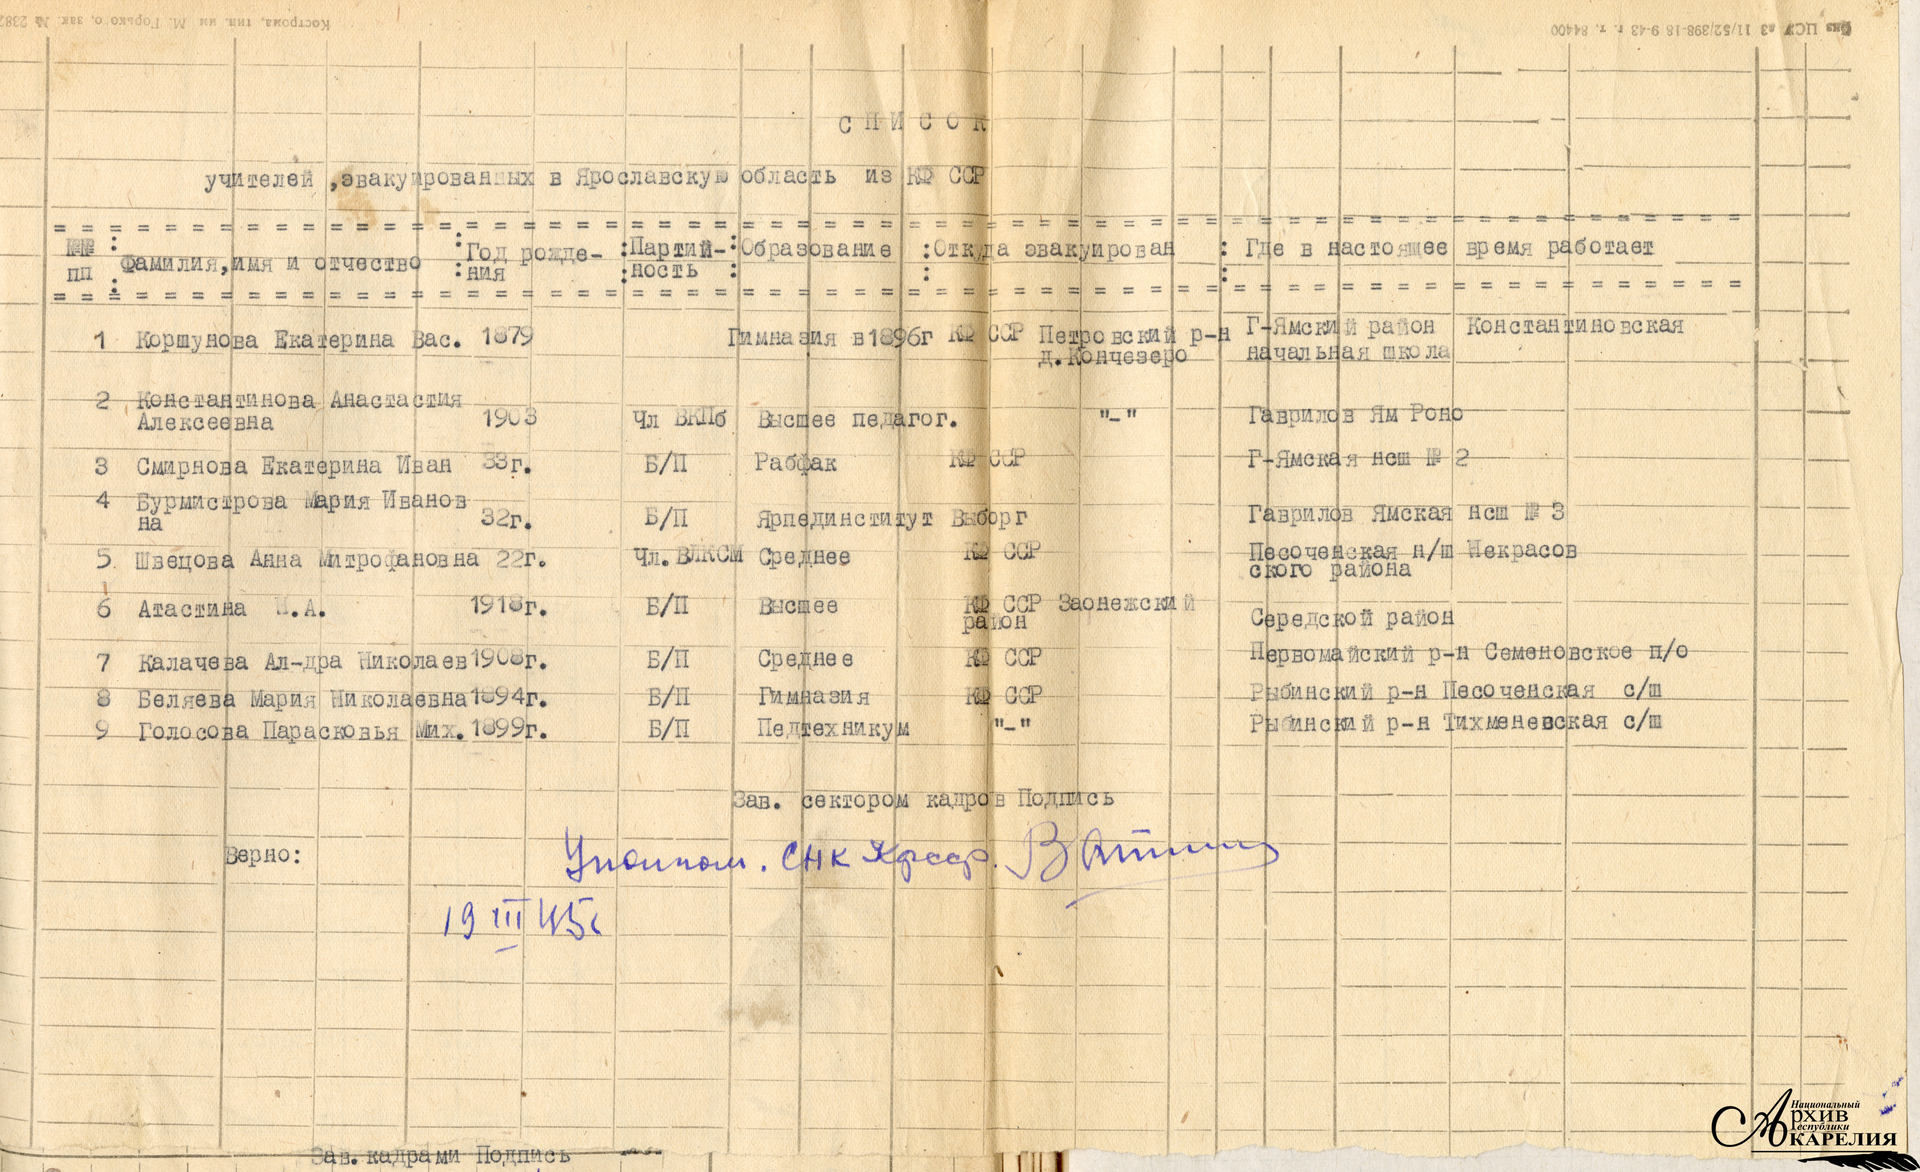 Кострома, тип. им. М. Горького, зак. № 238
ЦСУ 11/52/398-18 9-43 г. т. 84400
СПИСОК
учителей ,эвакуированных в Ярославскую область из КФ ССР
№№ пп : Фамилия,имя и отчество : Год рожде- ния : Партий- ность : Образование : Откуда эвакуирован : Где в настоящее время работает
1 Коршунова Екатерина Вас. 1879 Гимназия в 1896г КФ ССР Петровский р-н Г-Ямский район Константиновская
д.Кончезеро начальная школа
2 Константинова Анастастия
Алексеевна 1903 Чл ВКПб Высшее педагог. "-" Гаврилов Ям Роно
3 Смирнова Екатерина Иван 33г. Б/П Рабфак КФ ССР Г-Ямская нсш № 2
4 Бурмистрова Мария Иванов
на 32г. Б/П Ярпединститут Выборг Гаврилов Ямская нсш № 3
5 Швецова Анна Митрофановна 22г. Чл.ВЛКСМ Среднее КФ ССР Песоченская н/ш Некрасов
ского района
6 Атастина .А. 1918г. Б/П Высшее КФ ССР Заонежский
район Середской район
7 Калачева Ал-дра Николаев 1908г. Б/П Среднее КФ ССР Первомайский р-н Семеновское п/о
8 Беляева Мария Николаевна 1894г. Б/П Гимназия КФ ССР Рыбинский р-н Песоченская с/ш
9 Голосова Парасковья Мих. 1899г. Б/П Педтехникум "-" Рыбинский р-н Тихменевская с/ш
Зав. сектором кадров Подпись
Верно: Уполном. СНК Кфсср.
19 III 45г
Зав. кадрами Подпись
Национальный
Архив
Республики
Карелия